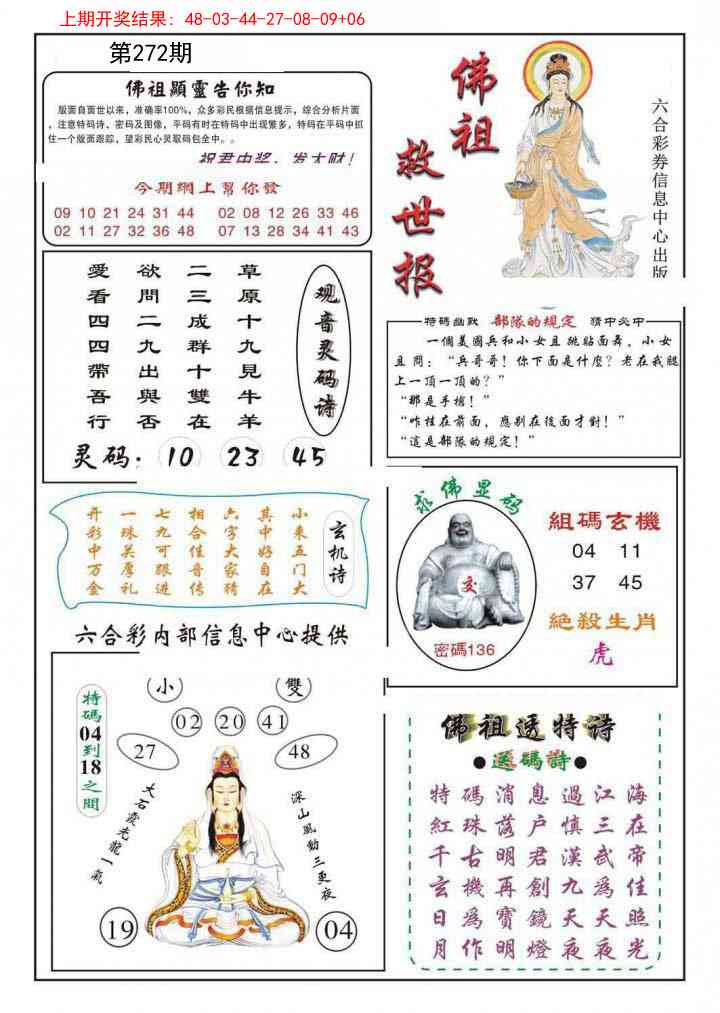 上期开奖结果：48-03-44-27-08-09+06
第272期
佛祖顯靈告你知
版面自面世以来，准确率100%，众多彩民根据信息提示，综合分析片面
，注意特码诗、密码及图像，平码有时在特码中出现繁多，特码在平码中抓
住一个版面跟踪，望彩民心灵取码包全中。。
祝君中奖，发大财！
今期網上幫你發
09 10 21 24 31 44 02 08 12 26 33 46
02 11 27 32 36 48 07 13 28 34 41 43
佛祖
救世报
六合彩券信息中心出版
愛欲二草
看問三原
四二成十
四九群九
帶出十見
吾與雙牛
行否在羊
观音灵码诗
灵码：10 23 45
特碼幽默 部隊的規定 猜中必中
一個美國兵和小女且跳貼面舞。小女
且問：“兵哥哥！你下面是什麼？老在我腿
上一頂一頂的？”
“那是手槍！”
“咋挂在前面，應别在後面才對！”
“這是部隊的規定！”
开一七相六其小
彩珠九合字中乘
中关可佳大好五
万厚跟音家自门
金礼进传猜在大
玄机诗
六合彩内部信息中心提供
求佛显码
交
密碼136
組碼玄機
04 11
37 45
絕殺生肖
虎
小
雙
特碼04到18之間
02 20 41
27
48
大石霞光龍一氣
深山風動三更夜
19
04
佛祖透特诗
●送碼詩●
特碼消息過江海
紅珠落户慎三在
千古明君漢武帝
玄機再創九為佳
日為寶鏡天天照
月作明燈夜夜光